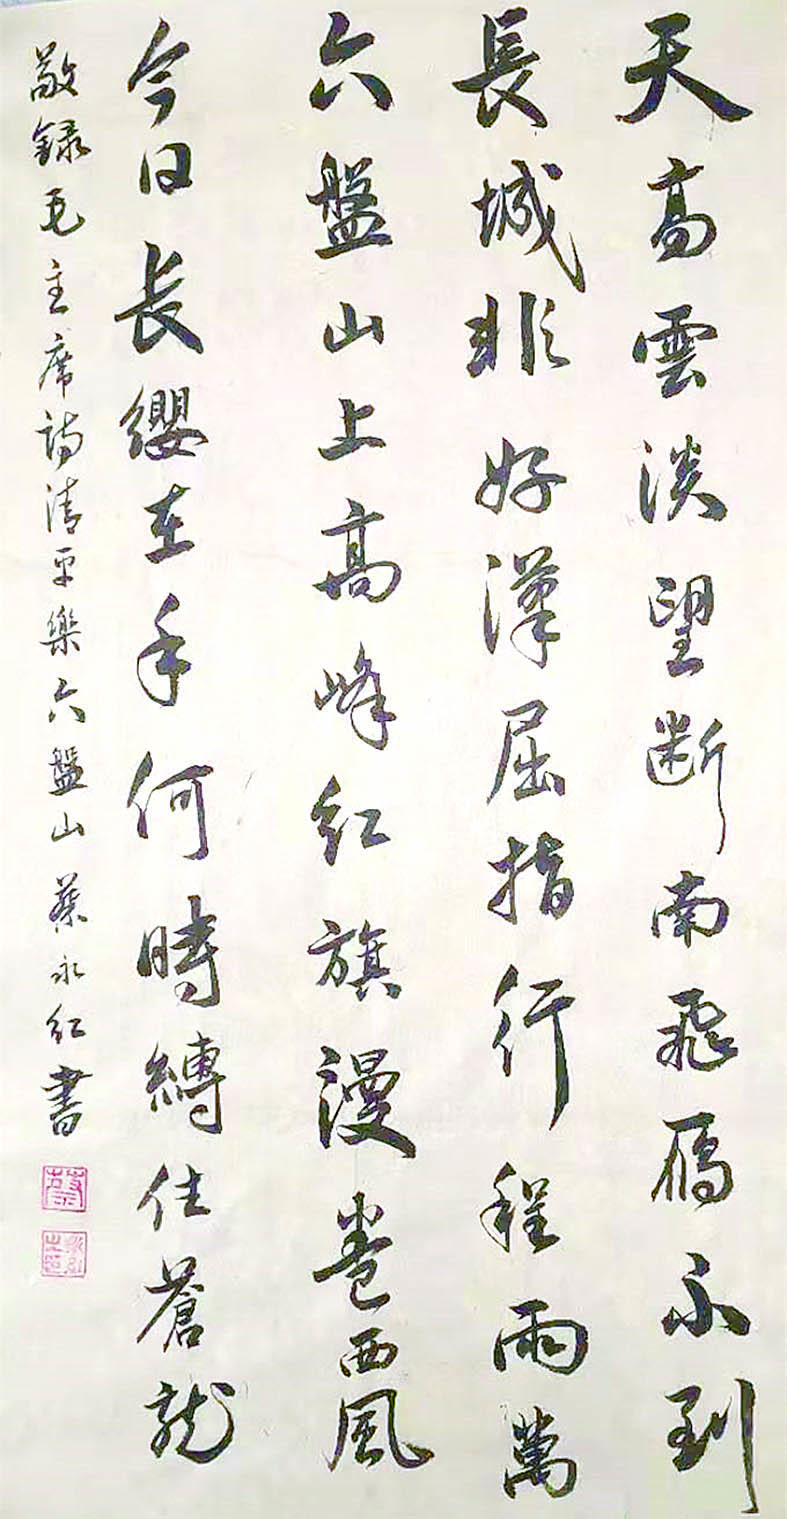 天高雲淡望断南飛鴈不到
長城非好漢屈指行程兩萬
六盤山上高峰紅旗漫卷西風
今日長纓在手何時縛住蒼龍
敬錄毛主席詩清平樂六盤山蔡永紅書
蔡